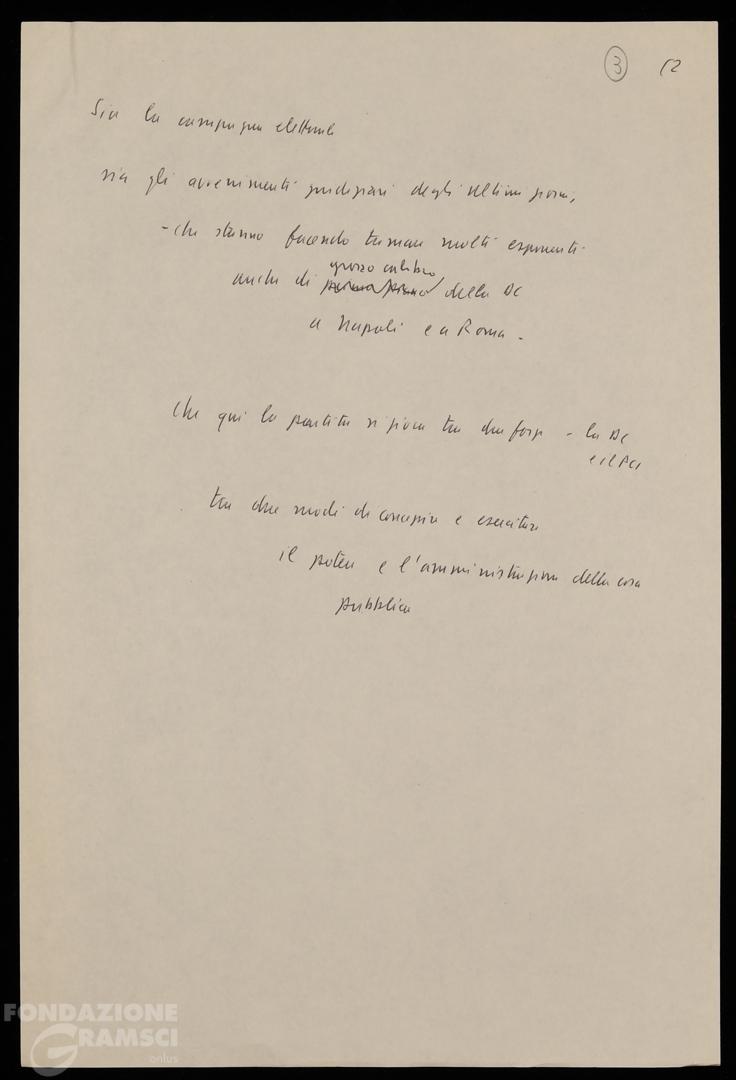 3 12
Sia la campagna elettorale
sia gli avvenimenti giudiziari degli ultimi giorni,
- che stanno facendo tremare molti esponenti
grosso calibro
anche di primo piano della DC
a Napoli e a Roma -
che qui la partita si gioca tra due forze - la DC
e il PCI
tra due modi di concepire e esercitare
il potere e l'amministrazione della cosa
pubblica
FONDAZIONE
GRAMSCI
onlus